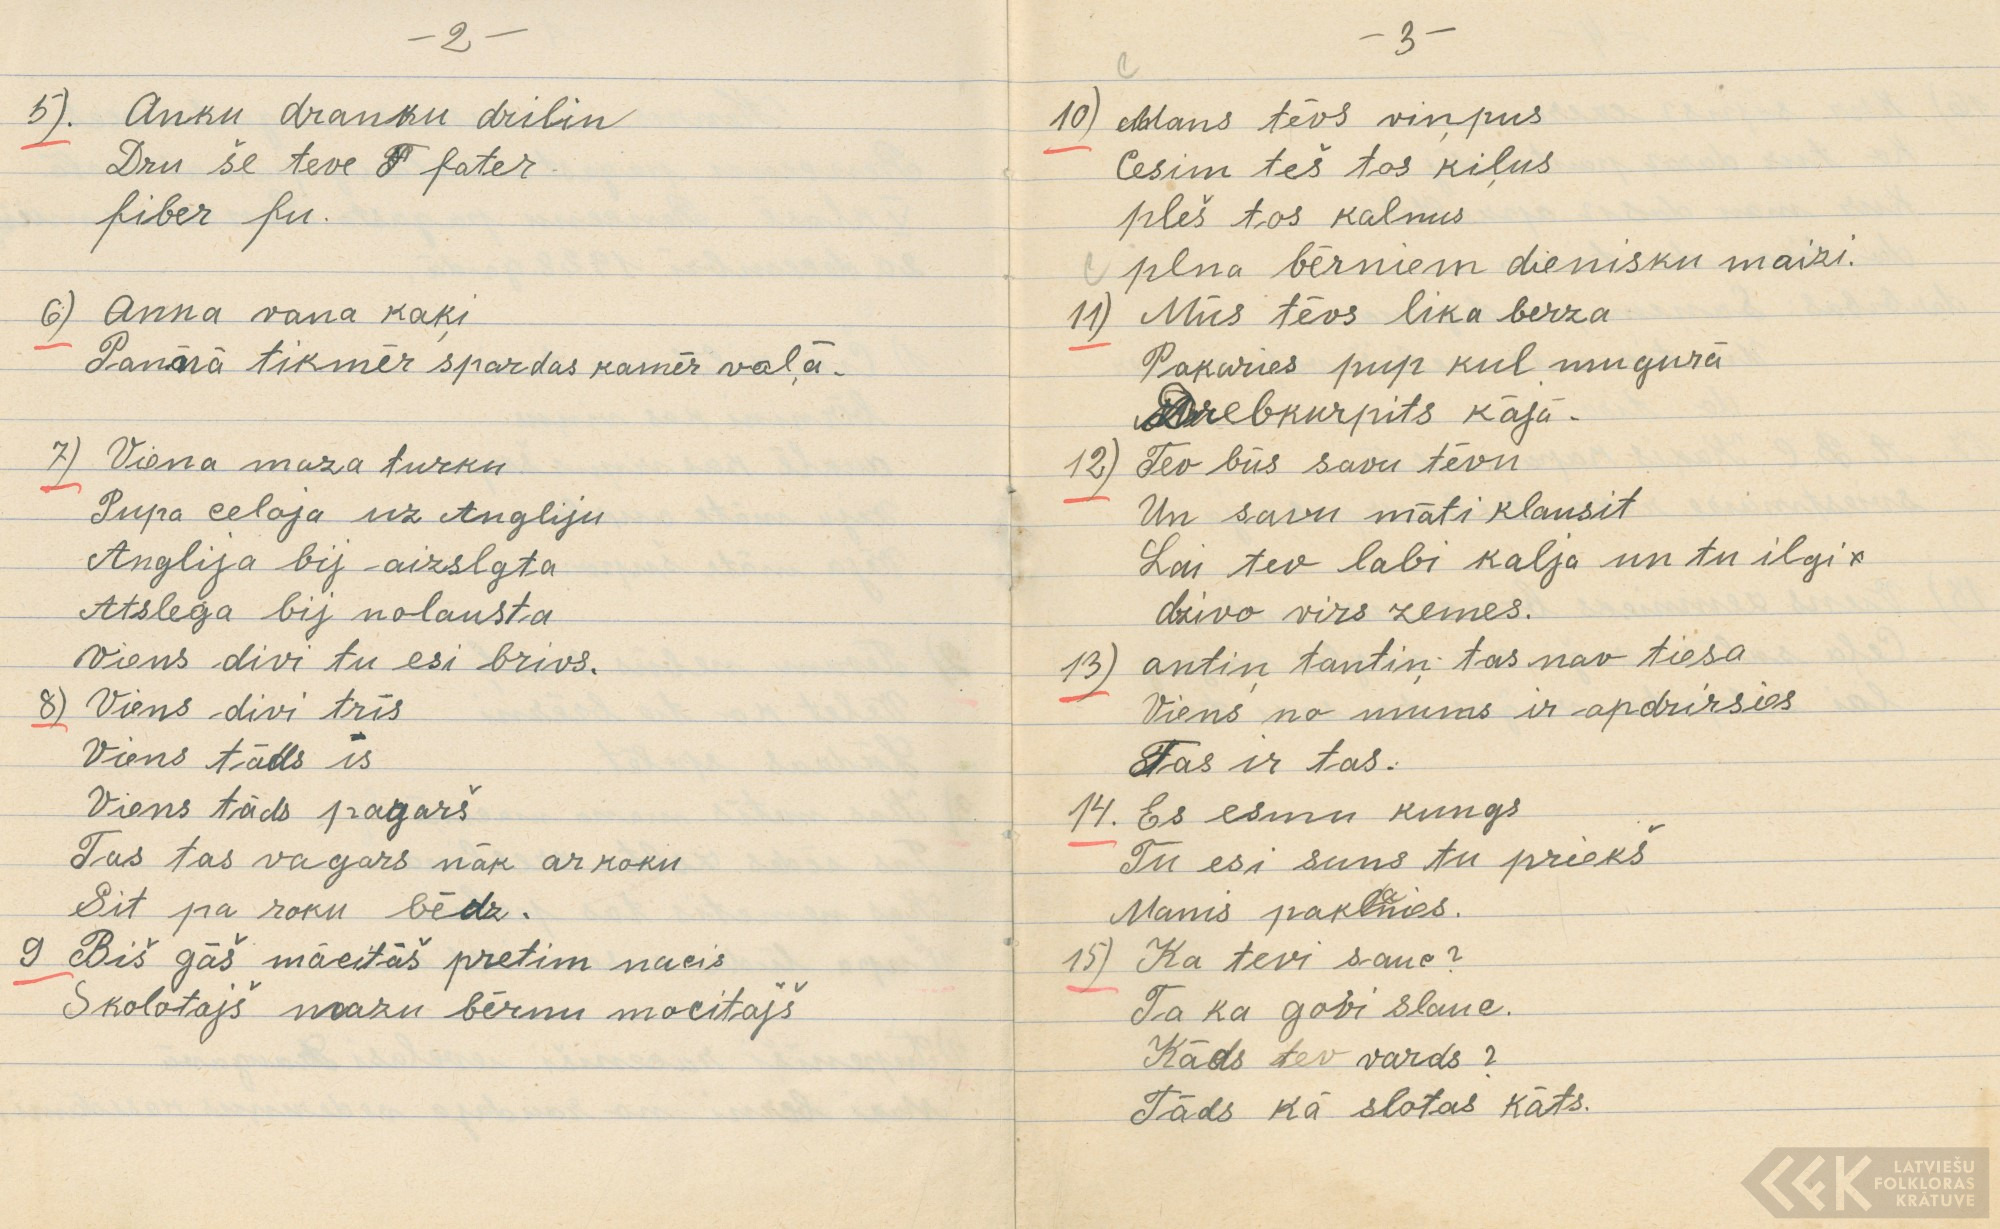 - 2 -
5). Anku dranku drilin
Dru še teve F fater
fiber fu.
6) Anna vana kaķi
Pannā tikmēr spardas kamēr vaļā.
7) Viena maza turku
Pupa celoja uz Angliju
Anglija bij aizslgta
Atslega bij nolausta
Viens divi tu esi brivs.
8) Viens divi trīs
Viens tāds is
Viens tāds pagarš
Tas tas vagars nāk ar koku
Sit pa roku bēdz.
9 Biš gāš mācitāš pretim nacis
Skolotajš mazu bērnu mocitajš
- 3 -
10) Mans tēvs viņpus
Cesim teš tos kiļus
pleš tos kalnus
plna bērniem dienisku maizi.
11) Mūs tēvs lika berza
Pakaries pup kul mugurā
Drebkurpits kājā.
12) Tev būs savu tēvu
Un savu māti klausit
Lai tev labi kalja un tu ilgi x
dzivo virs zemes.
13) antiņ tantiņ tas nav tiesa
Viens no mums ir apdirsies
Tas ir tas.
14. Es esmu kungs
Tu esi suns tu priekš
Manis paklanies.
15) Ka tevi sauc?
Ta ka govi slauc.
Kāds tev vards?
Tāds kā slotas kāts.
LATVIEŠU
FOLKLORAS
KRĀTUVE